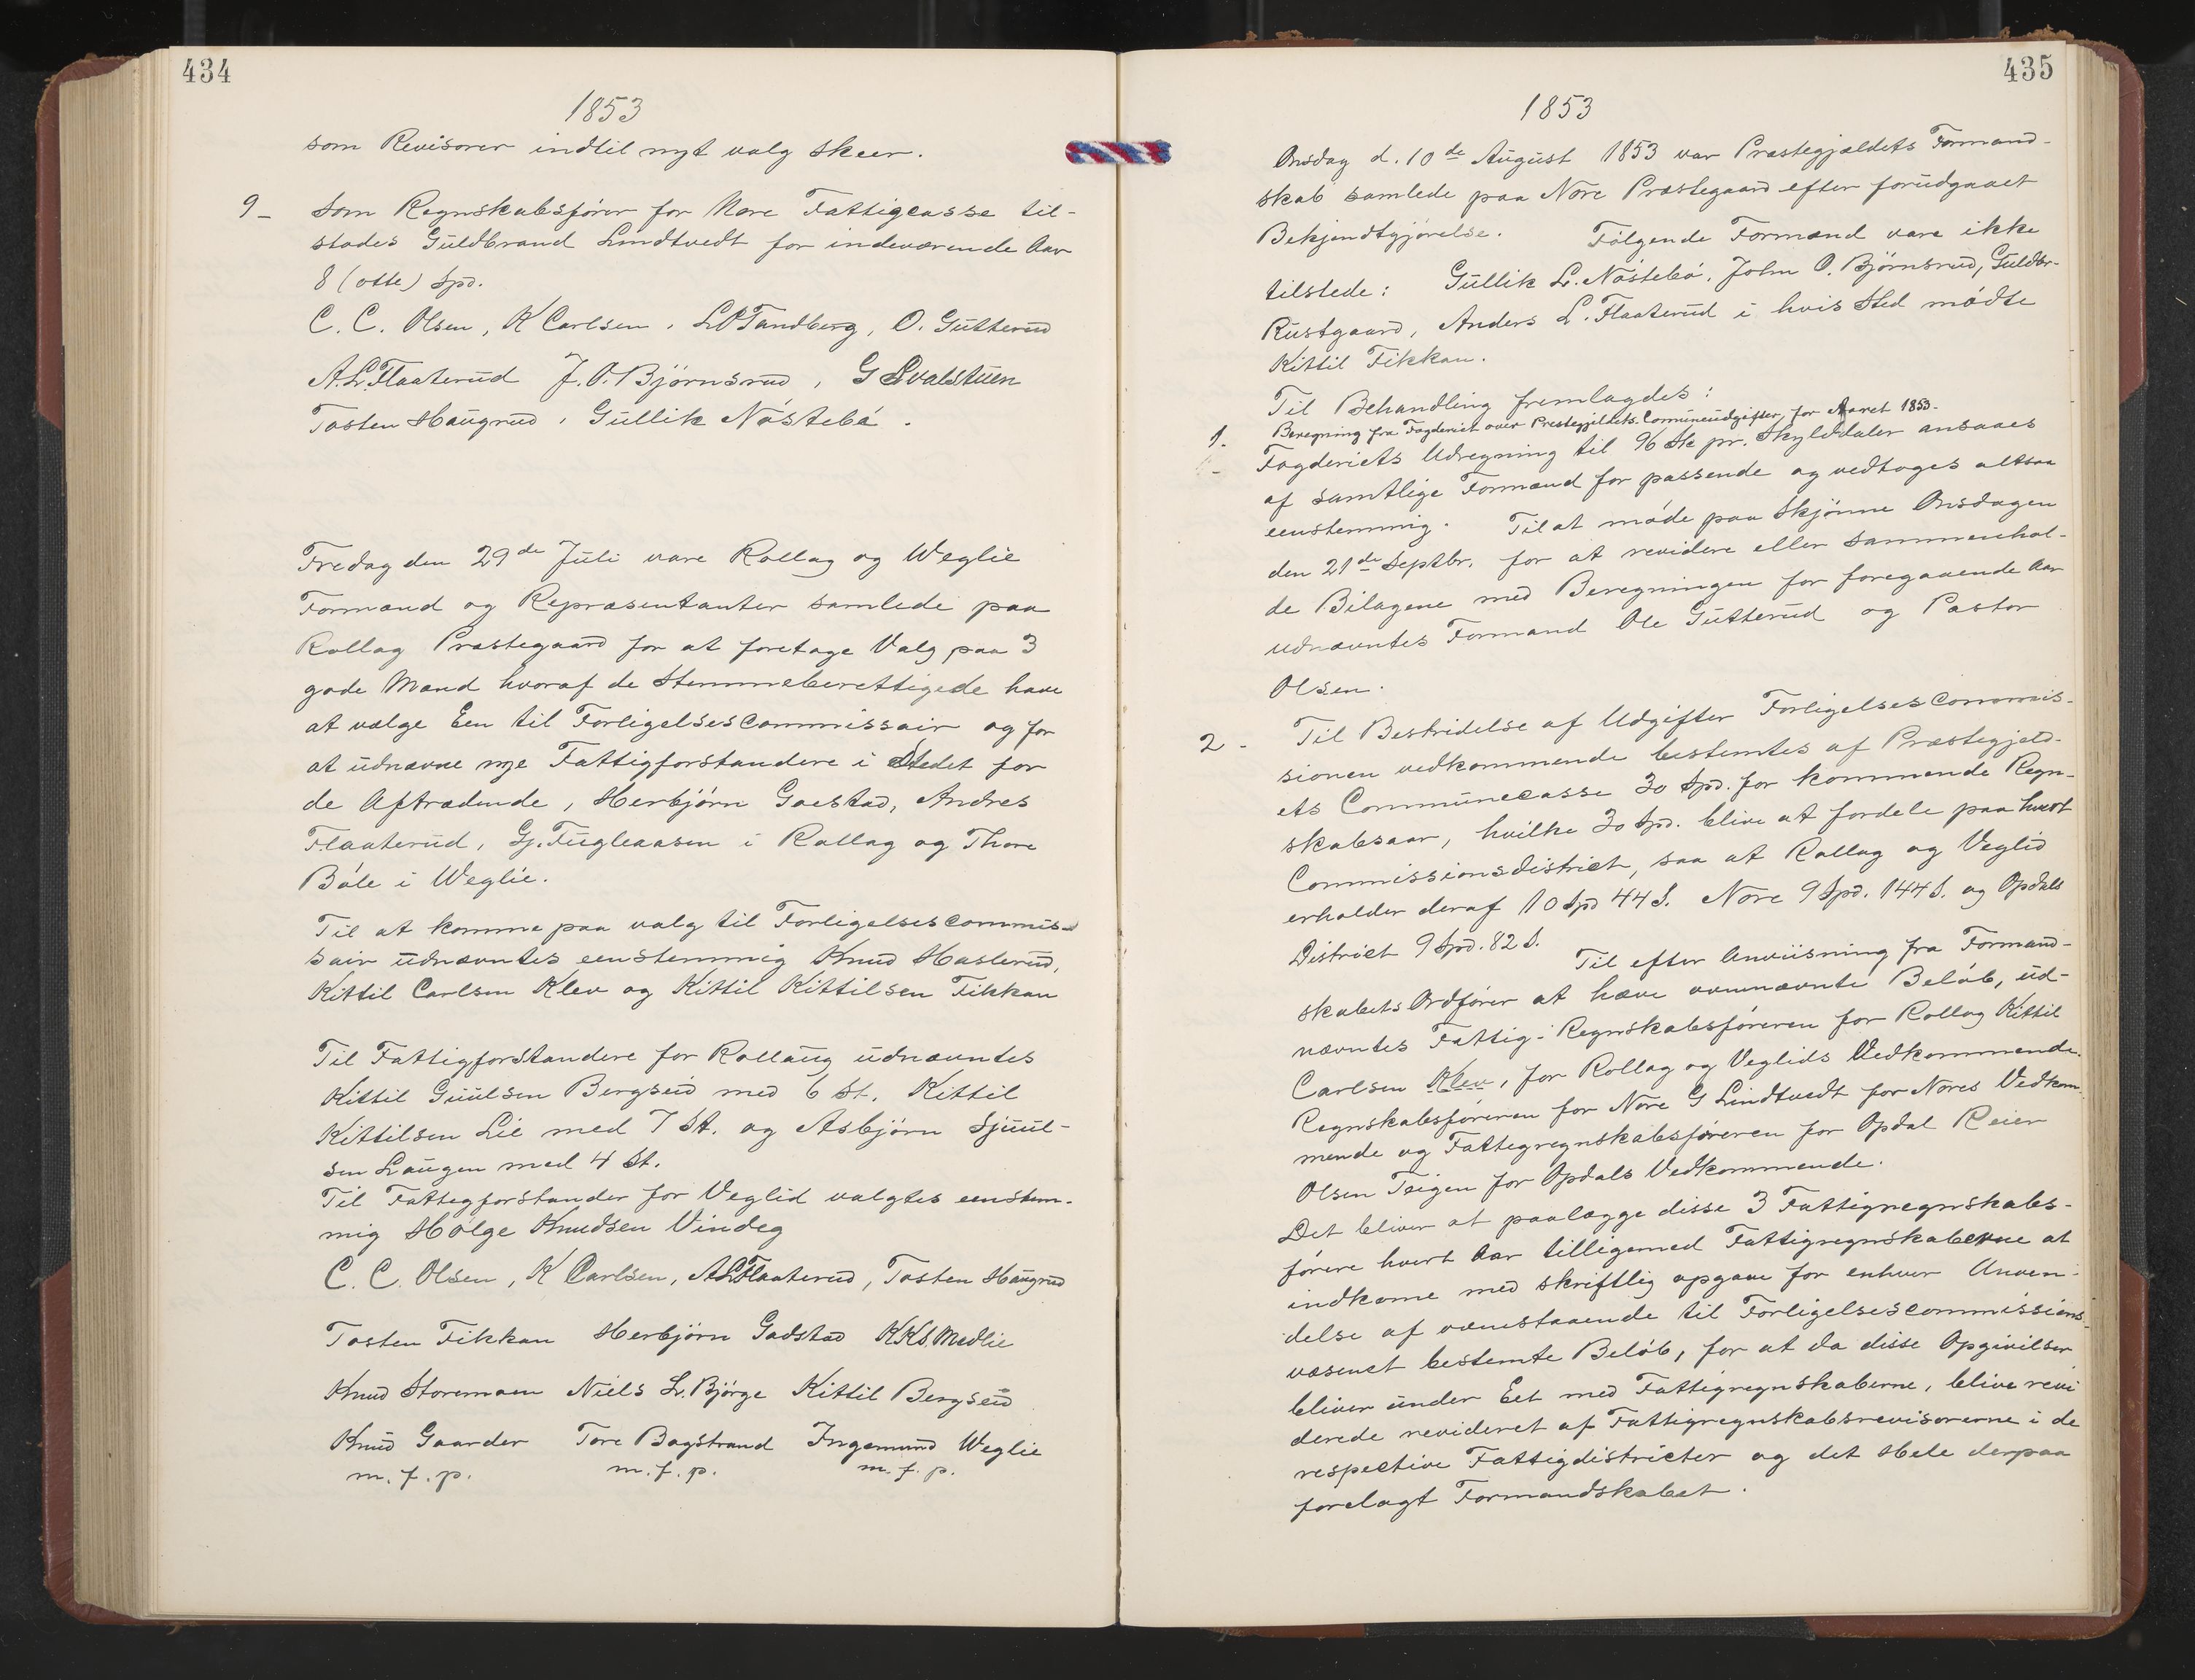 434
1853
som Revisorer indtil nyt valg skeer.
9 - Som Regnskabsfører for Nore Fattigcasse til-
stodes Guldbrand Lindtvedt for indeværende Aar
8 (otte) Spd.
C. C. Olsen, K Carlsen, L P Tandberg, O. Gutterud
A. L. Flaaterud J. O. Bjørnsrud, G Evalstuen
Tosten Haugrud, Gullik Nöstebö.
Fredag den 29de Juli vare Rollag og Weglie
Formænd og Repræsentanter samlede paa
Rollag Præstegaard for at foretage Valg paa 3
gode Mænd hvoraf de Stemmeberettigede have
at vælge Een til Forligelsescommissair og for
at udnævne nye Fattigforstandere i Stedet for
de Aftrædende, Herbjörn Gaestad, Andres
Flaaterud, Gj. Fugleaasen i Rollag og Thore
Böle i Weglie.
Til at komme paa valg til Forligelsescommis-
sair udnævntes eenstemmig Knud Haslerud,
Kittil Carlsen Klev og Kittil Kittilsen Fikkan
Til Fattigforstandere for Rollaug udnævntes
Kittil Guulsen Bergseid med 6 St. Kittil
Kittilsen Lie med 7 St. og Asbjörn Sjuul-
sen Laugen med 4 St.
Til Fattegforstander for Veglid valgtes eenstem-
mig Holge Knudsen Vindeg
C. C. Olsen, K Carlsen, A L Flaaterud, Tosten Haugrud
Tosten Fikkan Herbjörn Gadstad K K S. Medlie
Knud Storemoen Niels L. Björge Kittil Bergseid
Knud Gaarder Tore Bagstrand Ingemund Weglie
m. f. p. m. f. p. m. f. p.
435
1853
Onsdag d. 10de August 1853 var Præstegjældets Formand-
skab samlede paa Nore Præstegaard efter forudgaaet
Bekjendtgjörelse. Fölgende Formænd vare ikke
tilstede: Gullik L. Nöstebö, John O. Björnsrud, Guldbr.
Rustgaard, Anders L. Flaaterud i hvis Sted mödte
Kittil Fikkan.
Til Behandling fremlagdes:
1. Beregning fra Fogderiet over Prestegjeldets Comuneudgifter, for Aaret 1853.
Fogderiets Udregning til 96 Sk pr. Skylddaler ansaaes
af samtlige Formænd for passende og vedtoges altsaa
eenstemmig. Til at möde paa Skjönne Onsdagen
den 21de Septbr. for at revidere eller sammenhol-
de Bilagene med Beregningen for foregaaende Aar
udnævntes Formand Ole Gutterud og Pastor
Olsen.
2 - Til Bestridelse af Udgifter Forligelsescommis-
sionen vedkommende bestemtes af Præstegjeld-
ets Communecasse 30 Spd. for kommende Regn-
skabsaar, hvilke 30 Spd. blive at fordele paa hvert
Commissionsdistrict, saa at Rollag og Veglid
erholder deraf 10 Spd 44 S. Nore 9 Spd. 144 S. og Opdals
District 9 Spd. 82 S. Til efter Anviisning fra Formand-
skabets Ordförer at hæve ovennævnte Belöb, ud-
nævntes Fattig-Regnskabsföreren for Rollag Kittil
Carlsen Klev, for Rollag og Veglids Vedkommende.
Regnskabsföreren for Nore G Lindtvedt for Nores Vedkom
mende og Fattegregnskabsföreren for Opdal Reier
Olsen Teigen for Opdals Vedkommende.
Det bliver at paalægge disse 3 Fattigregnskabs-
förere hvert Aar tilligemed Fattigregnskaberne at
indkome med skriftlig opgave for enhver Anven-
delse af ovenstaaende til Forligelsescommissions-
væsenet bestemte Belöb, for at da disse Opgivelser
bliver under Eet med Fattigregnskaberne, blive revi
derede revideret af Fattigregnskabsrevisorerne i de
respective Fattigdistricter og det Hele derpaa
forelagt Formandskabet.